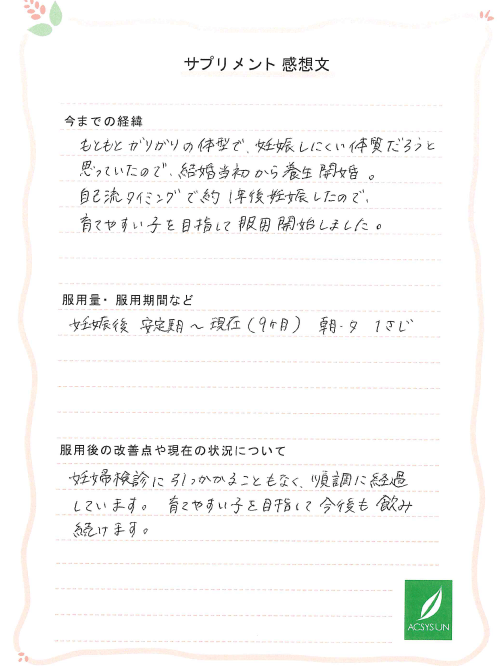 サプリメント 感想文
今までの経緯
もともとガリガリの体型で、妊娠しにくい体質だろうと
思っていたので、結婚当初から養生開始。
自己流タイミングで約1年後妊娠したので、
育てやすい子を目指して服用開始しました。
服用量・服用期間など
妊娠後 安定期～現在(9ヶ月) 朝・夕 1さじ
服用後の改善点や現在の状況について
妊婦検診に引っかかることもなく、順調に経過
しています。 育てやすい子を目指して今後も飲み
続けます。
ACSYSUN